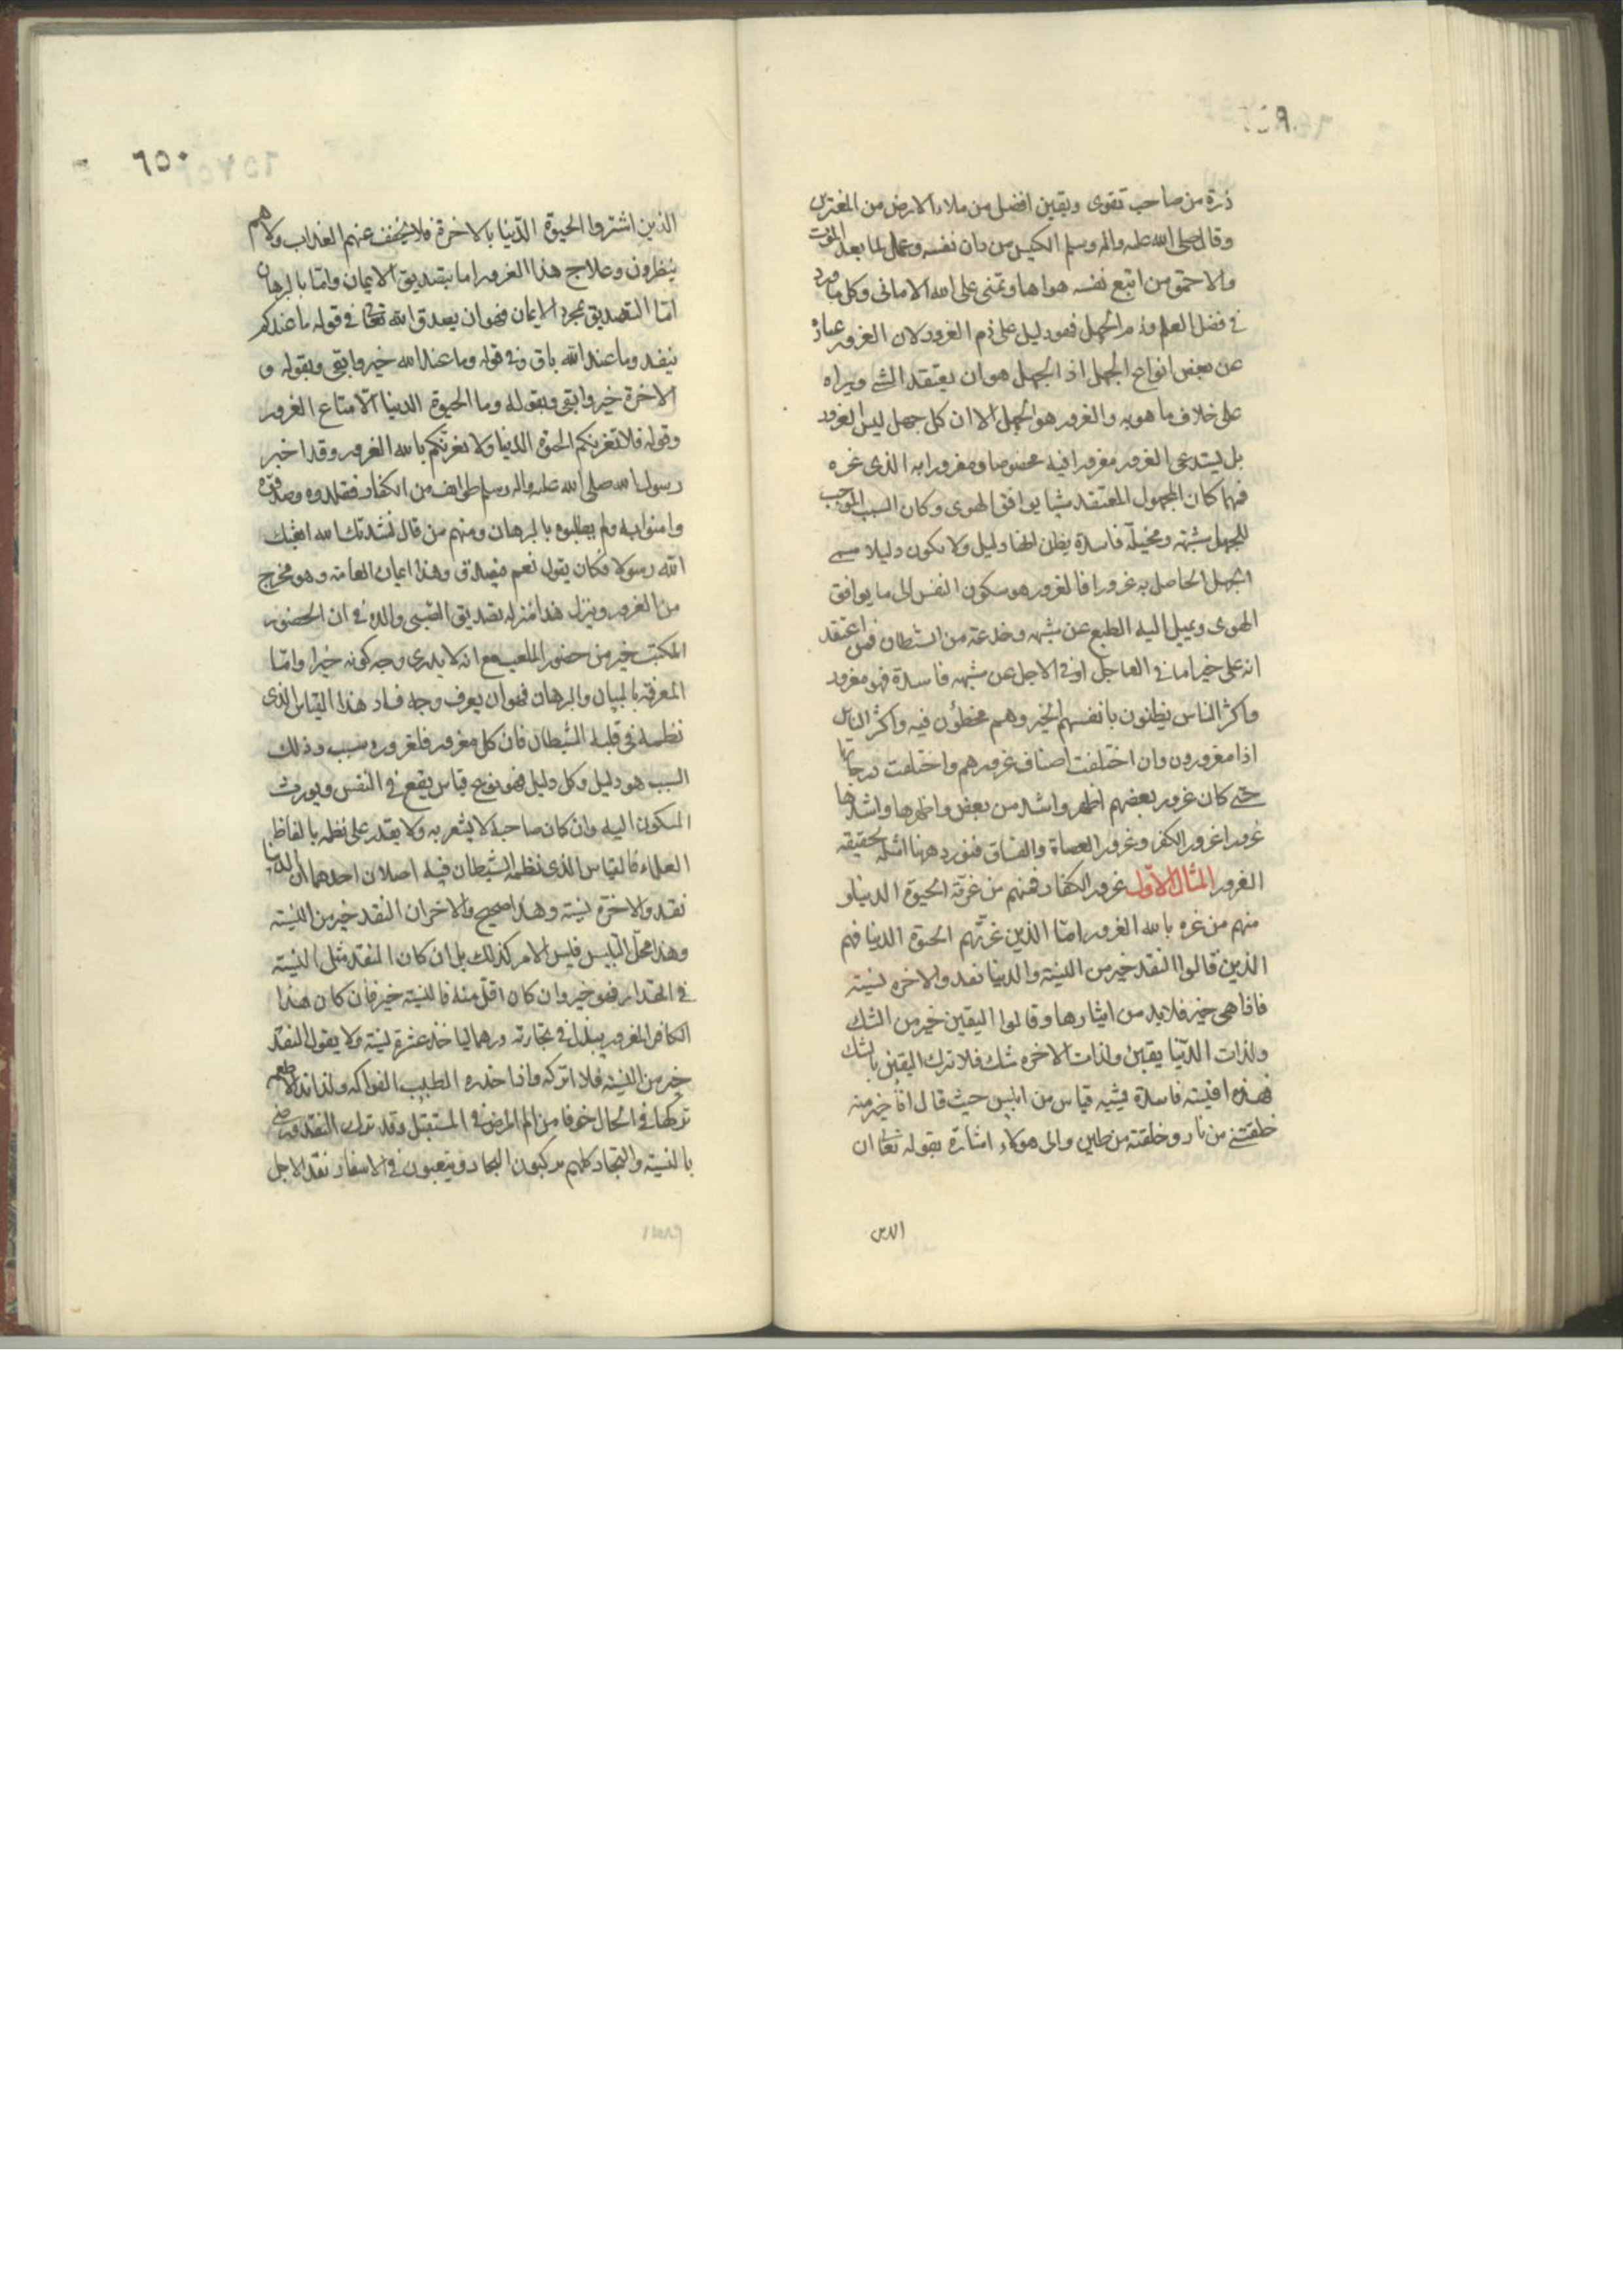 ذرة من صاحب تقوى ويقين افضل من ملاء الارض من المغترين
وقال صلى الله عليه واله وسلم الكيس من دان نفسه وعمل لما بعد الموت
والاحمق من اتبع نفسه هواها وتمنى على الله الامانى وكل ما ورد
فى فضل العلم وذم الجهل فهو دليل على ذم الغرور لان الغرور عبارة
عن بعض انواع الجهل اذ الجهل هو ان يعتقد الشئ ويراه
على خلاف ما هو به والغرور هو الجهل الا ان كل جهل ليس الغرور
بل يستدعى الغرور مغرورا فيه مخصوصا ومغرورا به الذى غره
فمهما كان المجهول المعتقد شيئا يوافق الهوى وكان السبب الموجب
للجهل شبهة ومخيلة فاسدة يظن انها دليل ولا يكون دليلا سمى
الجهل الحاصل به غرورا فالغرور هو سكون النفس الى ما يوافق
الهوى ويميل اليه الطبع عن شبهه وخدعة من الشيطان فمن اعتقد
انه على خير اما فى العاجل او فى الاجل عن شبهه فاسدة فهو مغرور
واكثر الناس يظنون بانفسهم الخير وهم مخطؤن فيه واكثر الناس
اذا مغرورون وان اختلفت اصناف غرورهم واختلفت درجاتها
حتى كان غرور بعضهم اظهر واشد من بعض واظهرها واشدها
غرورا غرور الكفر وغرور العصاة والفساق فنورد ههنا امثلة لحقيقة
الغرور المثال الاول غرور الكفار فمنهم من غرته الحيوة الدنيا و
منهم من غره بالله الغرور اما الذين غرتهم الحيوة الدنيا فهم
الذين قالوا النقد خير من النسيئة والدنيا نقد والاخره نسيئة
فاذا هى خير فلا بد من ايثارها وقالوا اليقين خير من الشك
ولذات الدنيا يقين ولذات الاخره شك فلا نترك اليقين بالشك
فهذه اقيسة فاسدة يشبه قياس من ابليس حيث قال انا خير منه
خلقتنى من نار وخلقته من طين والى هؤلاء اشارة بقوله تعالى ان
الذين
٦٥٠
الذين اشتروا الحيوة الدنيا بالاخرة فلا يخفف عنهم العذاب ولا هم
ينظرون وعلاج هذا الغرور اما بتصديق الايمان واما بالبرهان
اما التصديق بمجرد الايمان فهو ان يصدق الله تعالى فى قوله ما عندكم
ينفد وما عند الله باق وفى قوله وما عند الله خير وابقى وبقوله و
الاخرة خير وابقى وبقوله وما الحيوة الدنيا الا متاع الغرور
وقوله فلا تغرنكم الحيوة الدنيا ولا يغرنكم بالله الغرور وقد اخبر
رسول الله صلى الله عليه واله وسلم طوايف من الكفار فقلدوه وصدقوه
وامنوا به ولم يطلبوه بالبرهان ومنهم من قال نشدتك الله ابعثك
الله رسولا فكان يقول نعم فيصدق وهذا ايمان العامة وهو مخرج
من الغرور وينزل هذا منزلة تصديق الصبى والده فى ان الحضور
المكتب خير من حضور الملعب مع انه لا يدرى وجه كونه خيرا واما
المعرفة بالبيان والبرهان فهو ان يعرف وجه فساد هذا القياس الذى
نظمه فى قلبه الشيطان فان كل مغرور فلغروره سبب وذلك
السبب هو دليل وكل دليل فهو نوع قياس يقع فى النفس ويورث
السكون اليه وان كان صاحبه لا يشعر به ولا يقدر على نظمه بالفاظ
العلماء فالقياس الذى نظمه الشيطان فيه اصلان احدهما ان الدنيا
نقد والاخرة نسيئة وهذا صحيح والاخر ان النقد خير من النسيئة
وهذا محل التلبيس فليس الامر كذلك بل ان كان النقد مثل النسيئة
فى المقدار فهو خير وان كان اقل منه فالنسيئة خير فان كان هذا
الكافر المغرور يبذل فى تجارته درهما لياخذ عشرة نسيئة ولا يقول النقد
خير من النسيئة فلا اتركه واذا حذره الطبيب الفواكه ولذائذ الاطعمه
تركها فى الحال خوفا من الم المرض فى المستقبل وقد ترك النقد ورضى
بالنسيئة والتجار كلهم يركبون البحار ويتعبون فى الاسفار نقدا لاجل